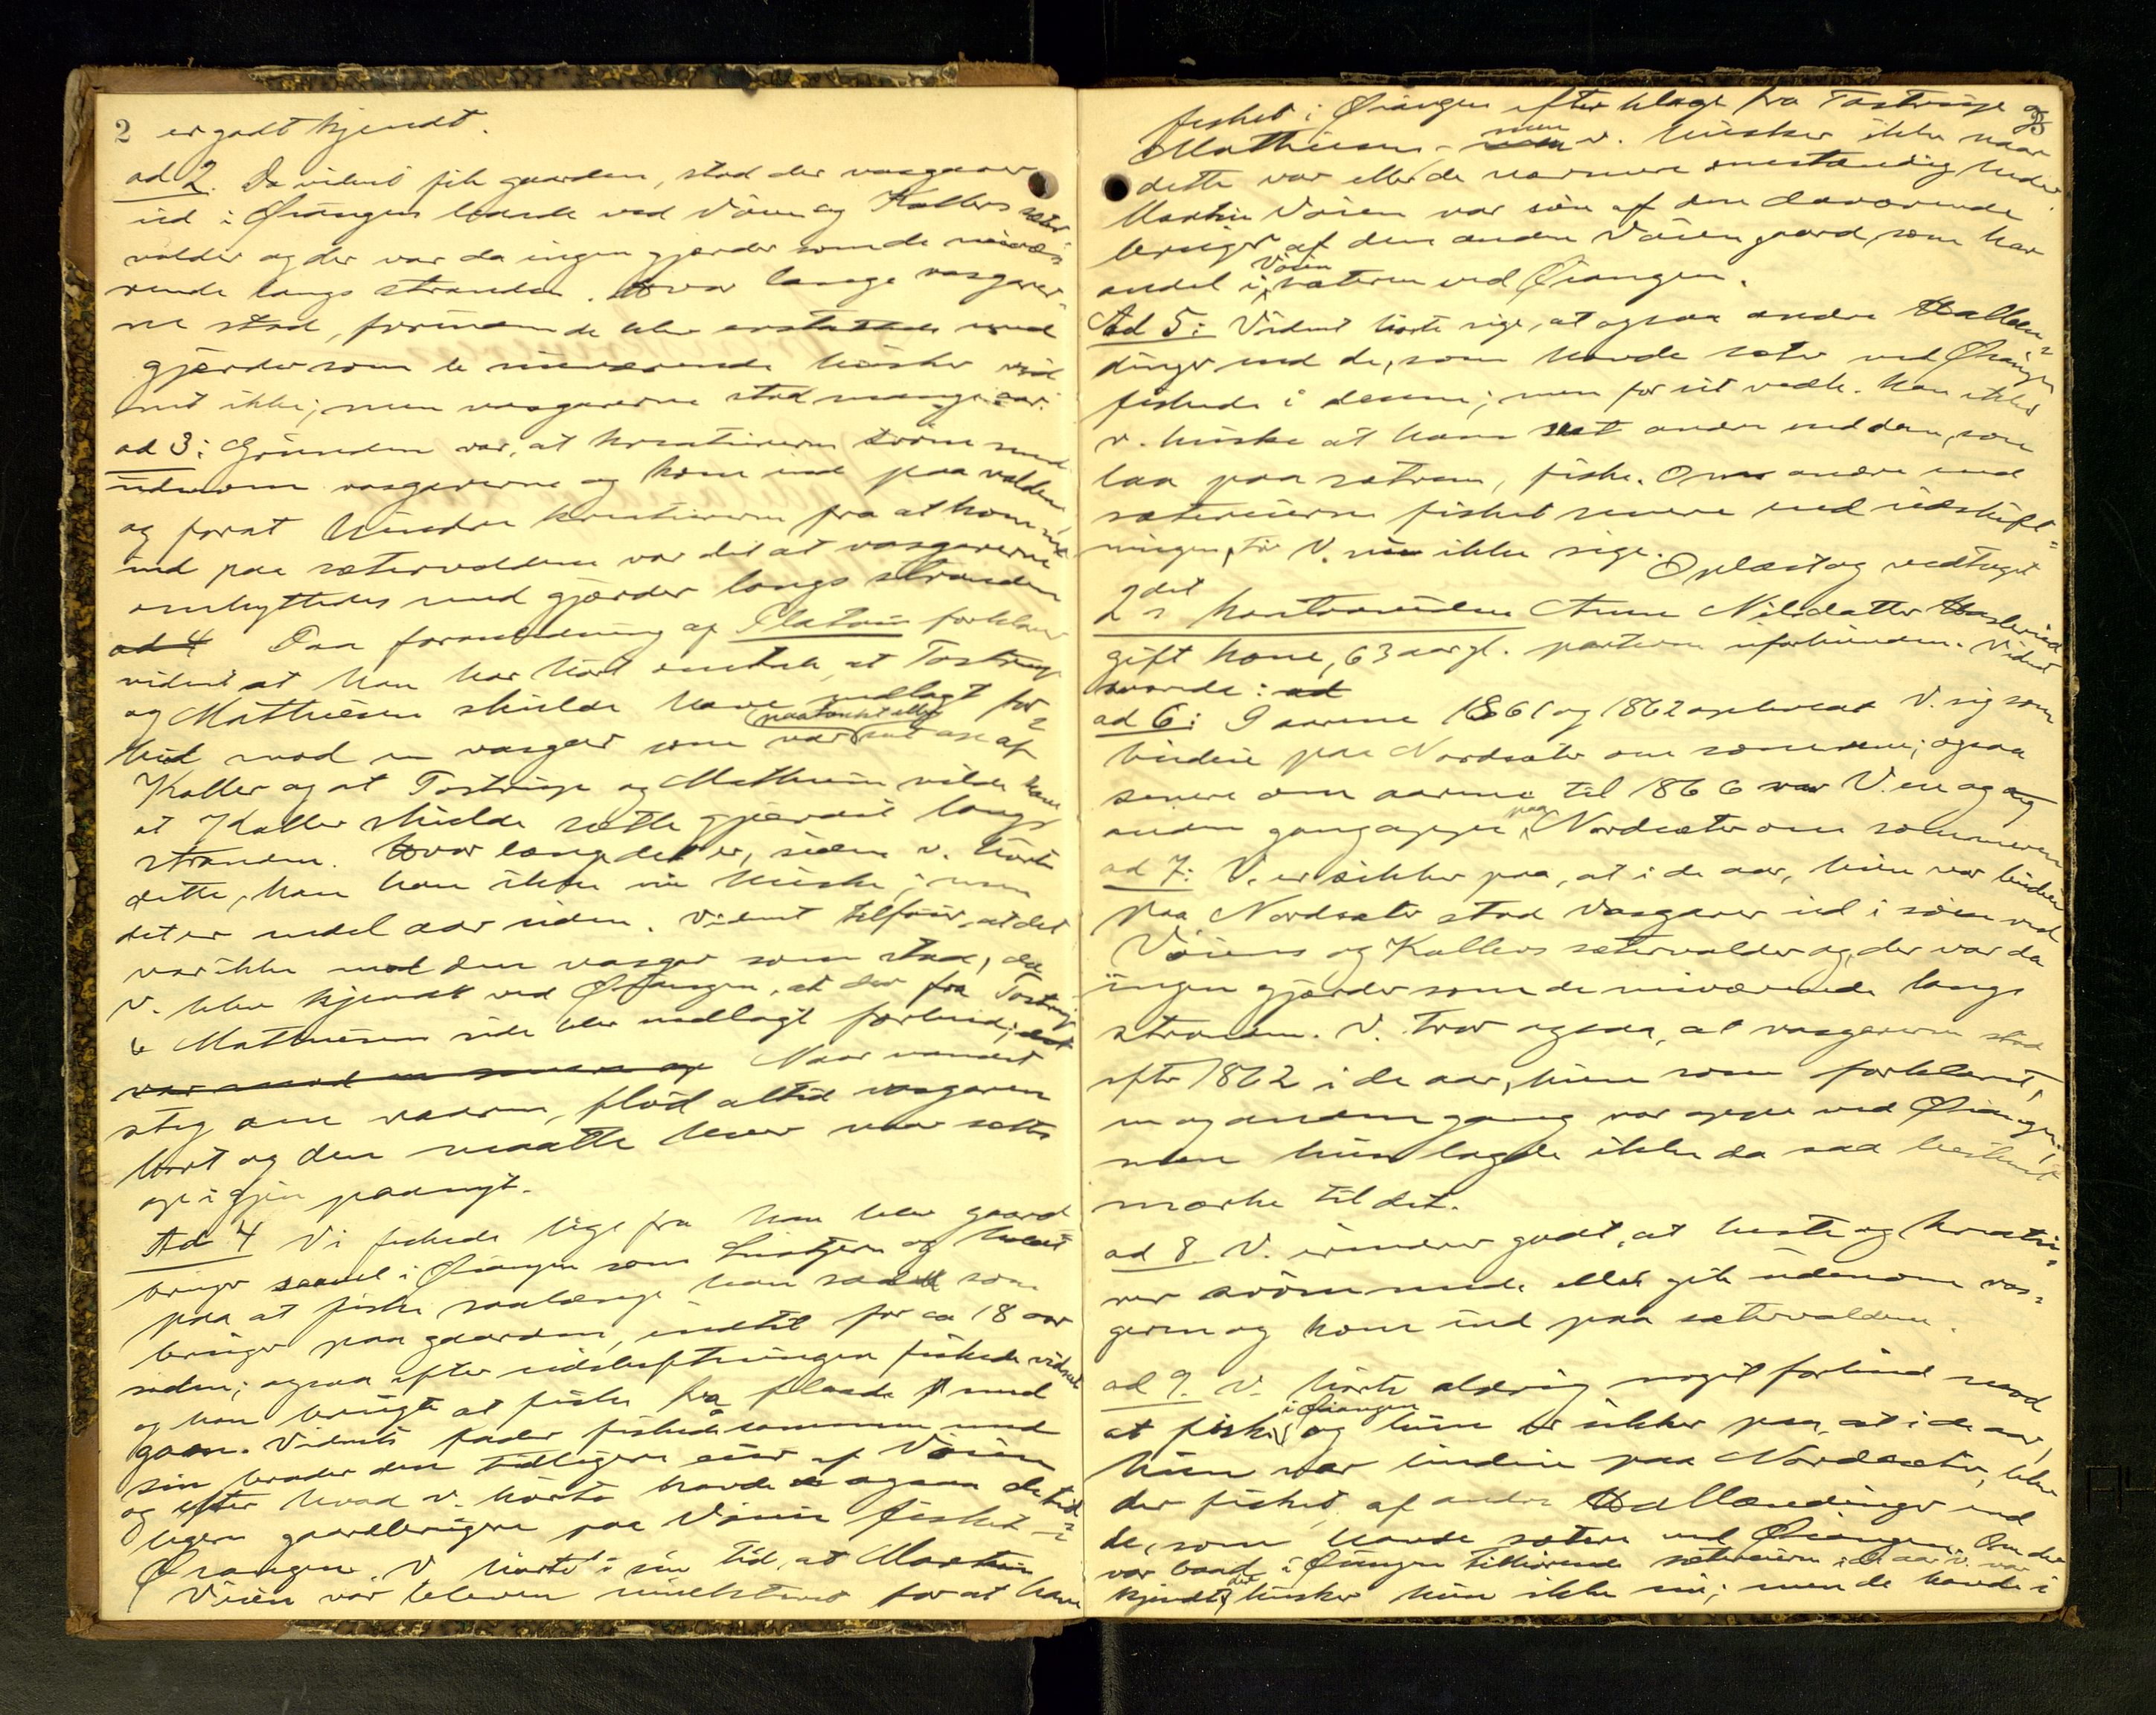 2 er godt kjendt.
ad 2. Da vidnet fik gaarden, stod der vasgarer
ud i Øiangen baade ved Vöien og Kallers sæter
volder og der var da ingen gjærder som de nuvæ=
rende langs stranden. Hvor længe vasgarer=
ne stod, forinden de blev erstattede med
gjærder som de nuværende husker vid
net ikke; men vasgarerne stod mange aar.
ad 3: Grunden var, at kreaturerne svöm med
udenom vasgarerne og kom ind paa volden,
og forat hindre kreaturerne fra at komme
ind paa sætervoldene var det at vasgarerne
ombyttedes med gjærder langs stranden
ad 4 Paa foranledning af Platou forklarer
vidnet at han har hört omtale, at Tostrup
og Mathiesen skulde have nedlagt for=
bud mod en vasgar som var paatænkt eller sat op af
Kaller og at Tostrup og Mathiesen vilde have
at Kaller skulde sætte gjærdet langs
stranden. Hvor længe det er, siden v. hörte
dette, kan han ikke nu huske; men
det er endel aar siden. Vidnet tilföier, at det
var ikke mod den vasgar som stod, da
v. blev kjendt ved Øiangen, at der fra Tostrup
& Mathiesens side blev nedlagt forbud; det
var mod en som Naar vandet
steg om vaaren, flöd altid vasgaren
bort og den maatte hver vaar sættes
op igjen paanyt.
Ad 4 Vi fiskede lige fra han blev gaard
bruger saavel i Øiangen som og holdt
paa at fiske saalænge han sad som
bruger paa gaarden, indtil for ca 18 aar
siden; ogsaa efter udskiftningen fiskede vidnet
og han brugte at fiske fra flaade med
garn. Vidnets fader fiskede sammen med
sin broder den tidligere eier af Vöien
og efter hvad v. hörte havde ogsaa de tid=
ligere gaardbrugere paa Vöien fisket i
Øiangen. V hörte i sin tid, at Martin
Vöien var bleven mulkteret for at have
fisket i Øiangen efter klage fra Tostrup og
Mathiesen - men v. husker ikke naar
dette var eller de nærmere omstændigheder.
Martin Vöien var sön af den daværende
bruger af den anden Vöien gaard, som har
andel i Vöien sæteren ved Øiangen.
Ad 5: Vidnet hörte sige, at ogsaa andre Hallæn=
dinger end de, som havde sæter ved Øiangen
fiskede i denne; men for sit vedk. kan ikke
v. huske at have set andre end dem, som
laa paa sætrene, fiske. Om andre end
sætereierne fisket senere end udskift=
ningen, tör V. nu ikke sige. Oplæst og vedtaget
2det kontravidne Anne Nilsdatter
gift kone, 63 aar gl. parterne uforbunden. Vidnet
svarede: ad
ad 6: I aarene 1861 og 1862 opholdt V. sig som
budeie paa Nordsæter om sommeren; ogsaa
senere om aarene til 1866 var V. en og
anden gang oppe paa Nordsæter om sommeren
ad 7: V. er sikker paa, at i de aar, hun var budeie
paa Nordsæter stod vasgarer ud i söen ved
Vöiens og Kallers sætervolder og der var da
ingen gjærder som de nuværende langs
stranden. V. tror ogsaa, at vasgarerne stod
efter 1862 i de aar, hun som forklaret,
en og anden gang var oppe ved Øiangen;
men hun lagde ikke da saa bestemt
mærke til det.
ad 8 V. erindrer godt, at heste og kreatu=
rer svömmede eller gik udenom vas=
gerne og kom ind paa sætervoldene.
ad 9. V. hörte aldrig noget forbud mod
at fiske i Øiangen og hun er sikker paa, at i de aar,
hun var budeie paa Nordsæter, blev
der fisket af andre Hallændinger end
de, som havde sætere ved Øiangen. Om der
var baad i Øiangen tilhörende sætereierne i de aar v. var
kjendt der husker hun ikke nu; men de havde i